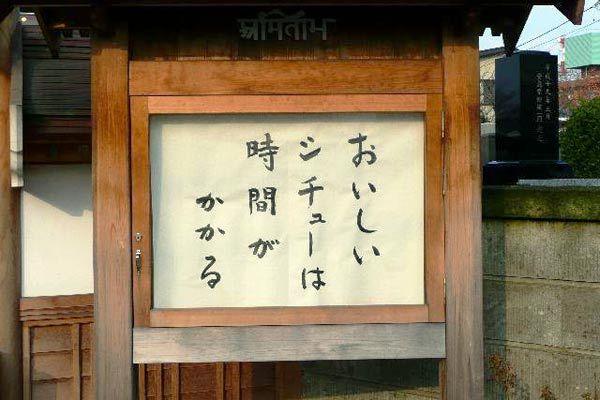 अमिताभ
おいしい
シチューは
時間が
かかる